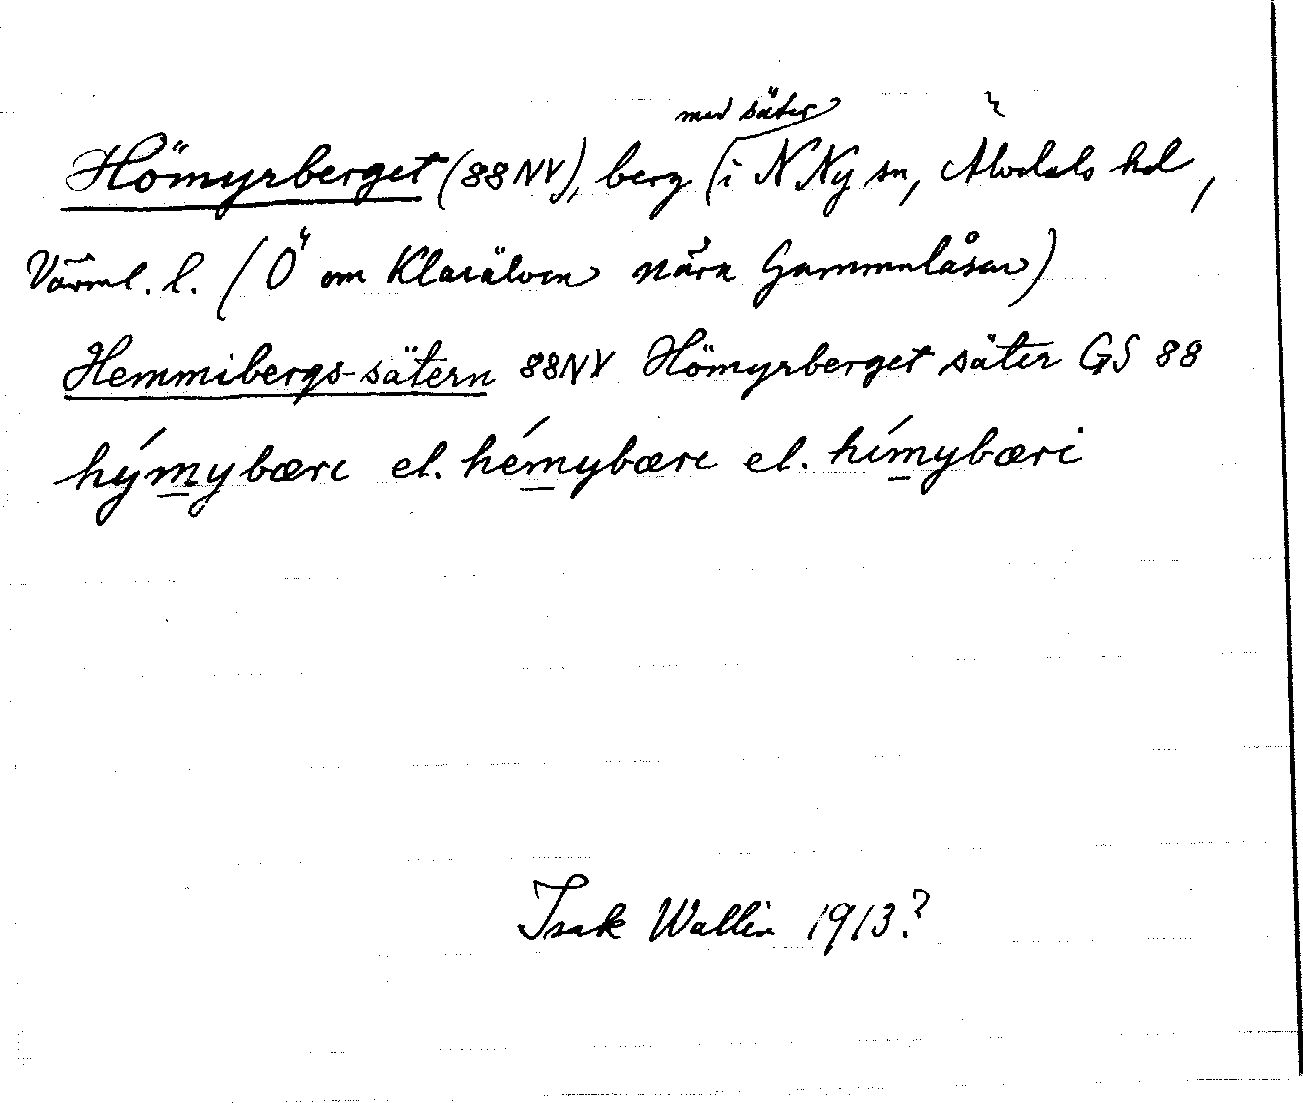 med säter
Hömyrberget (88 NV), berg (i N Ny sn, Älvdals hd,
Värml. l. (Ö om Klarälven nära Gammalåsen)
Hemmibergs-sätern 88NV Hömyrberget säter GS 88
hýmybærı el. hémybærı el. hímybæri
Isak Wallin 1913?